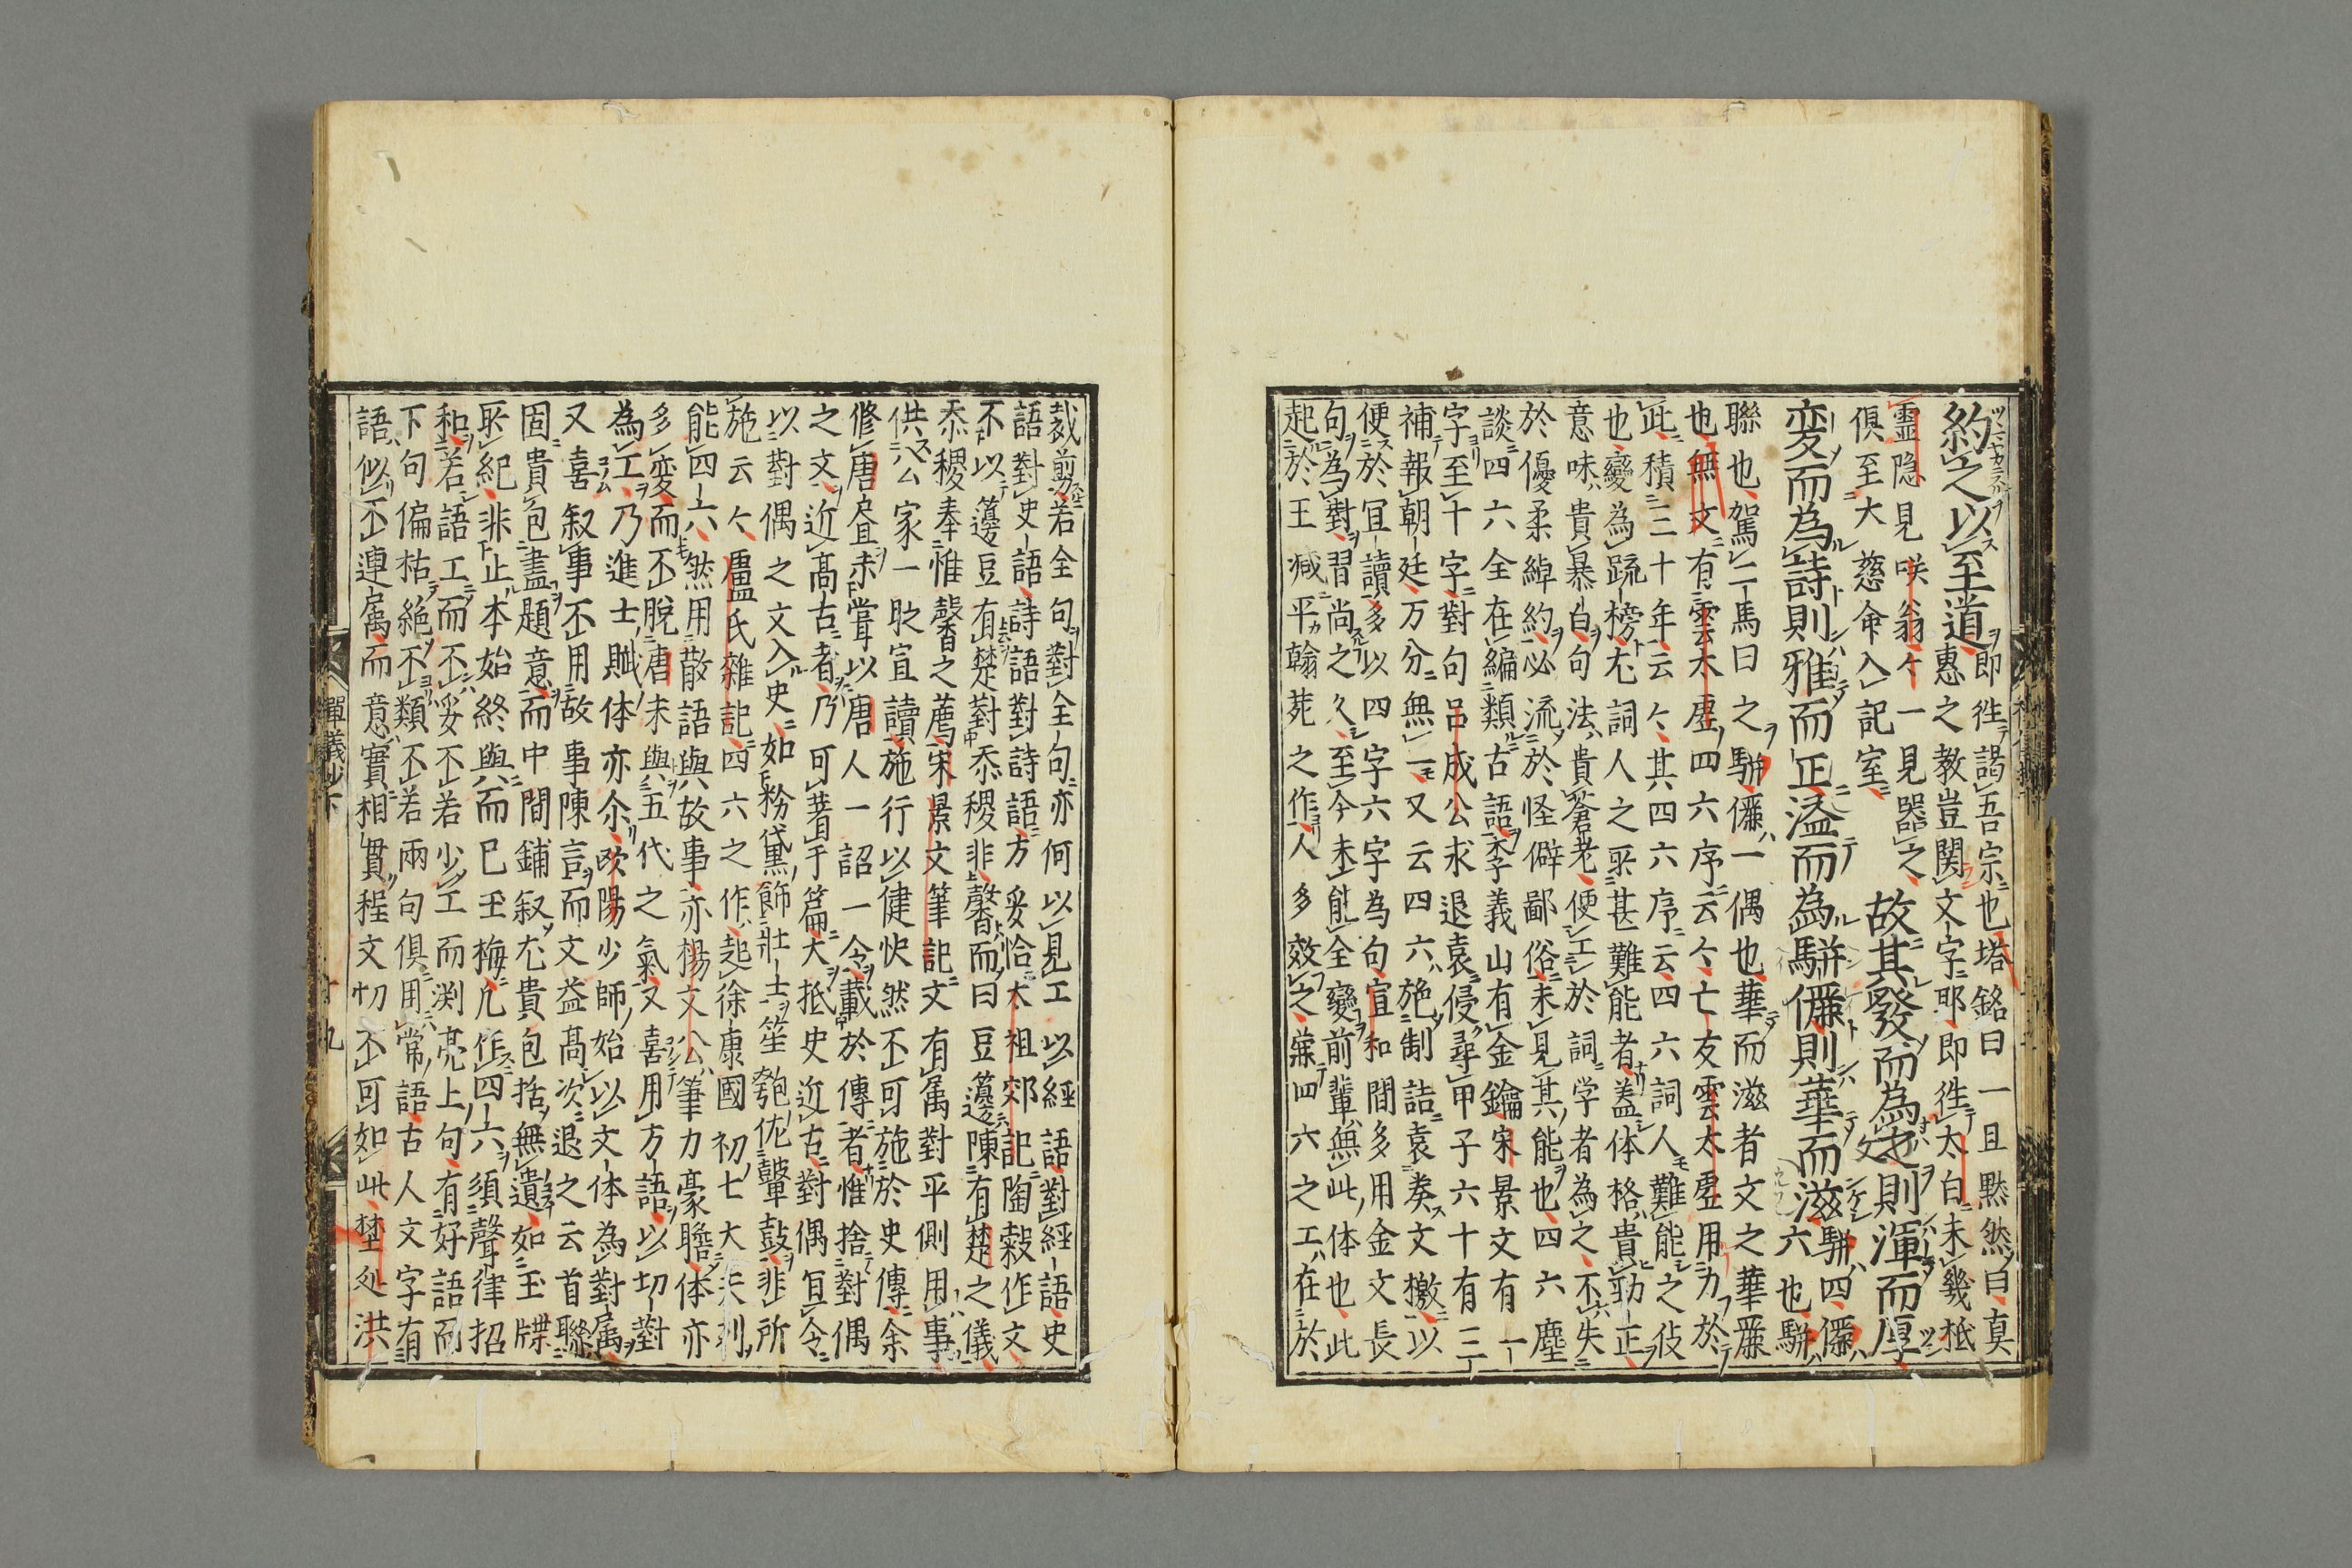 約之以至道即徃謁吾宗也塔銘曰一旦黙然曰真
惠之教豈関文字耶即徃太白未幾柢
靈隐見咲翁々一見器之故其發而為文則渾而厚
俱至大慈命入記室
変而為詩則雅而正溢而為駢儷則華而滋駢四儷六也駢
聯也駕二馬曰之駢儷一偶也華而滋者文之華麗
也無文有雲太虚四六序云々亡友雲太虚用力於
此積二十年云々其四六序云四六詞人難能之伎
也變為䟽榜尤詞人之罕甚難能者蓋体格貴勁正
意味貴暴白句法貴蒼老便工於詞学者為之不失
於優柔綽約必流於怪僻鄙俗未見其能也四六塵
談四六全在編類古語李義山有金鑰宋景文有一
字至十字對句吕成公求退袁侵尋甲子六十有三
補報朝廷万分無一又云四六施制誥袁奏文檄以
便於宣讀多以四字六字為句宣和間多用金文長
句為對習尚之久至今未能全變前輩無此体也此
起於王咸平翰苑之作人多效之蓋四六之工在於
裁剪若全句對全句亦何以見工以經語對經語史
語對史語詩語對詩語方妥恰太祖郊記陶穀作文
不以籩豆有楚對黍稷非馨而曰豆籩陳有楚之儀
黍稷奉惟馨之薦宋景文筆記文有属對平側用事
供公家一時宣讀施行以健快然不可施於史傳余
修唐書未嘗以唐人一詔一令載於傳者惟捨對偶
之文近高古者乃可著于篇大抵史近古對偶冝今
以對偶之文入史如粉黛飾壮士笙匏佐鼙鼓非所
施云々盧氏雜記四六之作起徐康國初七大夫刹
能四六然用散語與故事亦楊文公筆力豪贍体亦
多変而不脱唐末與五代之氣又喜用方語以切對
為工乃進士賦体亦尒欧陽少師始以文体為對属
又喜叙事不用故事陳言而文益高次退之云首聯
固貴包盡題意而中間鋪叙尤貴包括無遺如玉牒
聚紀非止本始終與而已玉梅凡作四六須聲律招
和若語工而不妥不若少工而渊亮上句有好語而
下句偏枯絶不類不若兩句俱用常語古人文字有
語似不連属而意實相貫程文切不可如此埜処洪
禪義抄下
十九